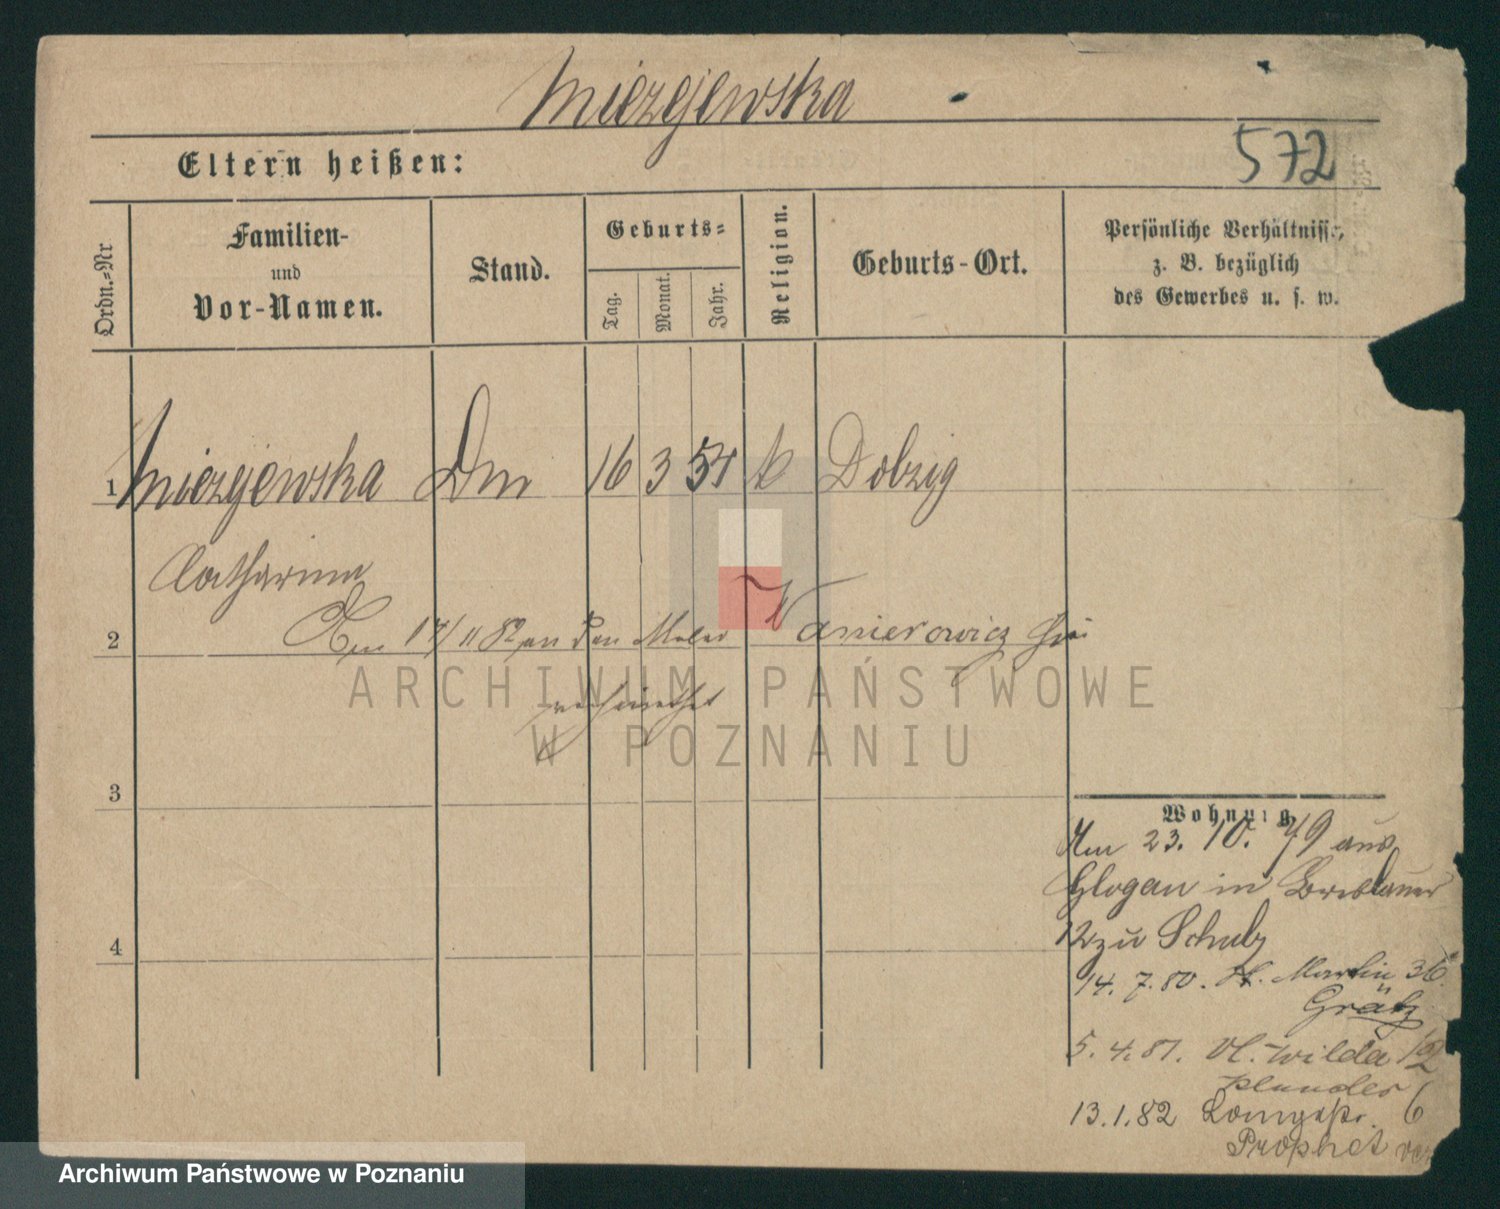 Mierzejewska
572
Eltern heißen:
Ordn.-Nr
Familien-
und
Vor-Namen.
Stand.
Geburts-
Tag.
Monat.
Jahr.
Religion.
Geburts-Ort.
Persönliche Verhältnisse,
z. B. bezüglich
des Gewerbes u. s. w.
1 16 3 54 k Dolzig
Catharina
2 Am 17/11 82 an den Maler
3
4
Wohnung
Am 23. 10. 79 aus
Glogau in Breslauer
12 zu Schulz
14. 7. 80. St. Martin 36
Grätz
5. 4. 81. Wilda 12
13. 1. 82 6
Prophet
ARCHIWUM PAŃSTWOWE
W POZNANIU
Archiwum Państwowe w Poznaniu